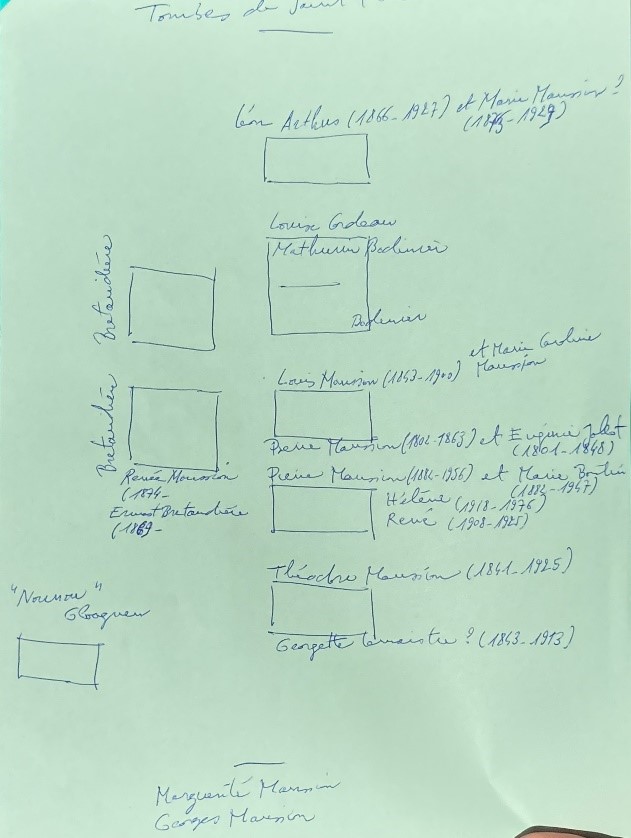 Tombes de Saint
Léon Arthus (1866-1927) et Marie Maussion ?
(1873-1929)
Louise Cordeau
Mathurin Bodinier
Bodinier
Bretaudière
Louis Maussion (1843-1900) et Marie Caroline
Maussion
Bretaudière
Pierre Maussion (1802-1863) et Eugénie Jallot
(1801-1848)
Renée Maussion
(1874-
Ernest Bretaudière
(1869-
Pierre Maussion (1882-1956) et Marie Boutin
(1882-1947)
Hélène (1918-1976)
René (1908-1925)
Théodore Maussion (1841-1925)
Georgette Lemaistre ? (1843-1913)
"Nounou"
Gloagueu
Marguerite Maussion
Georges Maussion